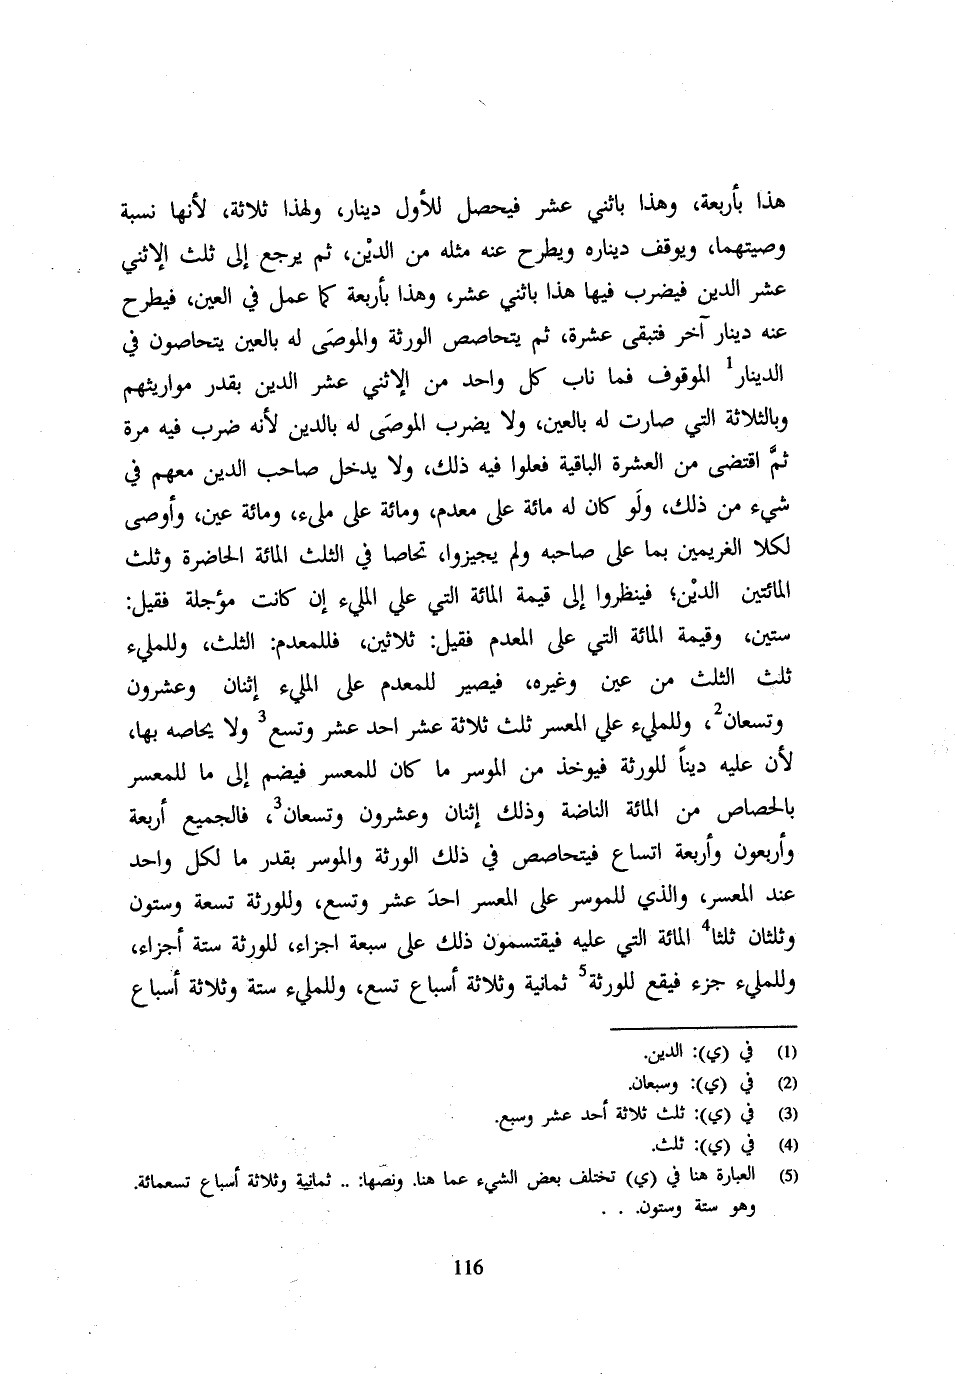 هذا بأربعة، وهذا باثني عشر فيحصل للأول دينار، ولهذا ثلاثة، لأنها نسبة
وصيتهما، ويوقف ديناره ويطرح عنه مثله من الديْن، ثم يرجع إلى ثلث الإثني
عشر الدين فيضرب فيها هذا باثني عشر، وهذا بأربعة كما عمل في العين، فيطرح
عنه دينار آخر فتبقى عشرة، ثم يتحاصص الورثة والموصَى له بالعين يتحاصون في
الدينار1 الموقوف فما ناب كل واحد من الإثني عشر الدين بقدر مواريثهم
وبالثلاثة التي صارت له بالعين، ولا يضرب الموصَى له بالدين لأنه ضرب فيه مرة
ثمَّ اقتضى من العشرة الباقية فعلوا فيه ذلك، ولا يدخل صاحب الدين معهم في
شيء من ذلك، ولَو كان له مائة على معدم، ومائة على مليء، ومائة عين، وأوصى
لكلا الغريمين بما على صاحبه ولم يجيزوا، تحاصا في الثلث المائة الحاضرة وثلث
المائتين الديْن؛ فينظروا إلى قيمة المائة التي علي المليء إن كانت مؤجلة فقيل:
ستين، وقيمة المائة التي على المعدم فقيل: ثلاثين، فللمعدم: الثلث، وللمليء
ثلث الثلث من عين وغيره، فيصير للمعدم على المليء إثنان وعشرون
وتسعان2، وللمليء علي المعسر ثلث ثلاثة عشر احد عشر وتسع3 ولا يحاصه بها،
لأن عليه ديناً للورثة فيوخذ من الموسر ما كان للمعسر فيضم إلى ما للمعسر
بالحصاص من المائة الناضة وذلك إثنان وعشرون وتسعان3، فالجميع أربعة
وأربعون وأربعة اتساع فيتحاصص في ذلك الورثة والموسر بقدر ما لكل واحد
عند المعسر، والذي للموسر على المعسر احدَ عشر وتسع، وللورثة تسعة وستون
وثلثان ثلثا4 المائة التي عليه فيقتسمون ذلك على سبعة اجزاء، للورثة ستة أجزاء،
وللمليء جزء فيقع للورثة5 ثمانية وثلاثة أسباع تسع، وللمليء ستة وثلاثة أسباع
(1) في (ي): الدين.
(2) في (ي): وسبعان.
(3) في (ي): ثلث ثلاثة أحد عشر وسبع.
(4) في (ي): ثلث.
(5) العبارة هنا في (ي) تختلف بعض الشيء عما هنا. ونصّها: .. ثمانية وثلاثة أسباع تسعمائة.
وهو ستة وستون. . .
116